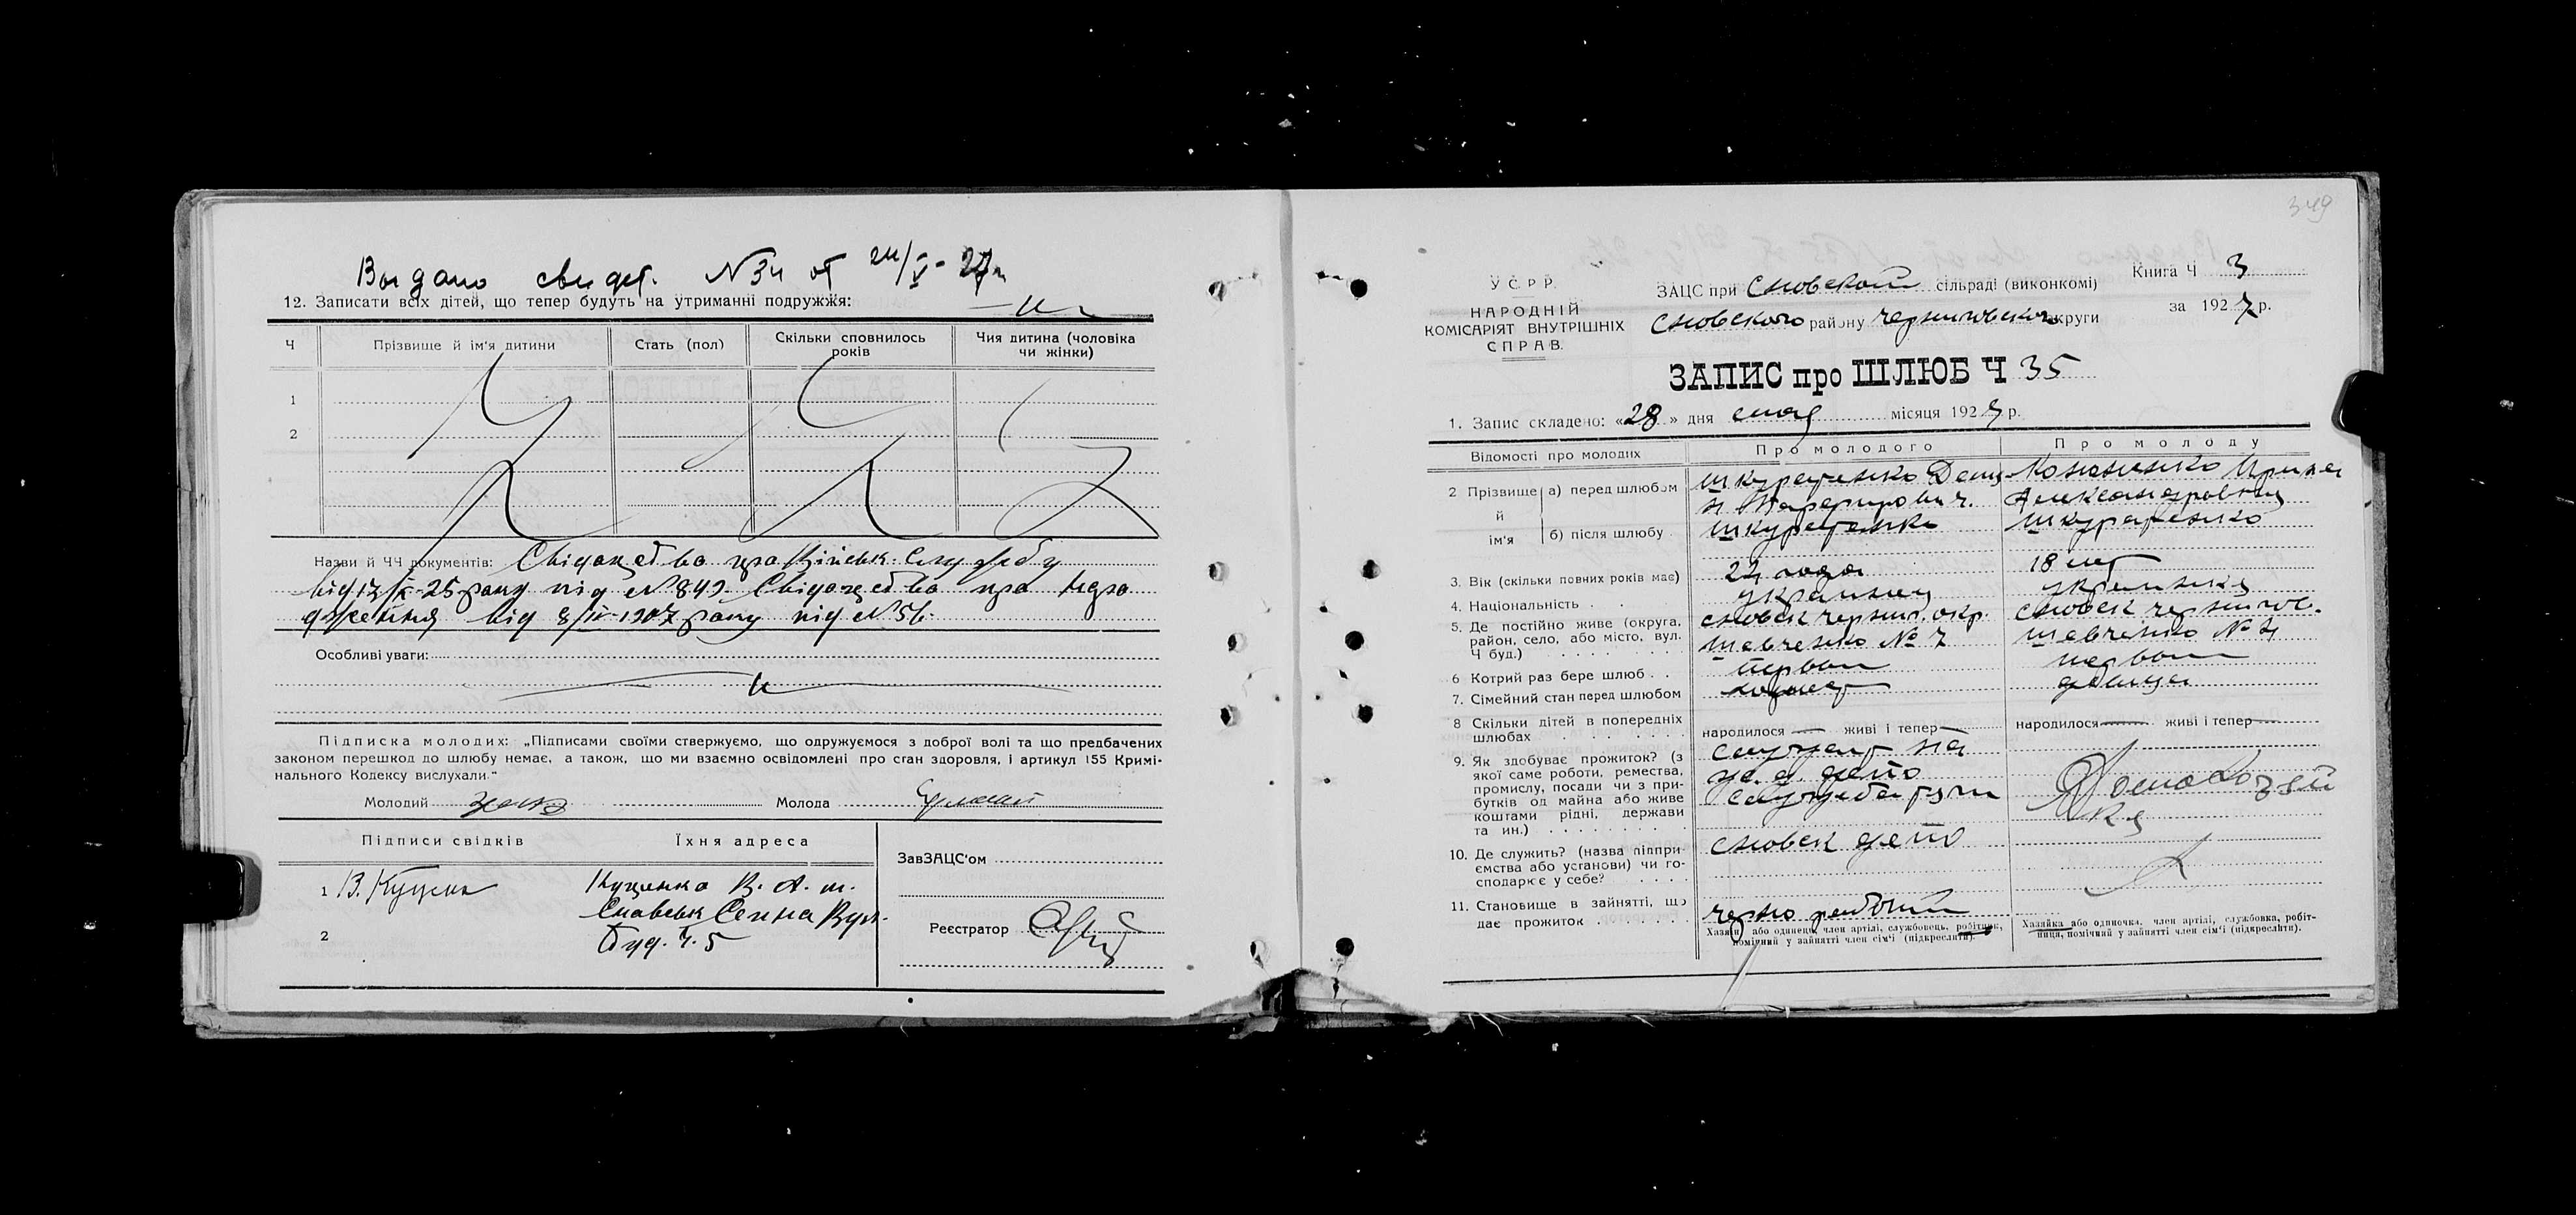 Выдано свидет. N 34 от 24/V-27 г.
12. Записати всіх дітей, що тепер будуть на утриманні подружжя:
Ч Прізвище й ім'я дитини Стать (пол) Скільки сповнилось років Чия дитина (чоловіка чи жінки)
1
2
Назви й ЧЧ документів: Свідоцтво про Військ. службу
від 25 року під № Свідоцтво про
від 8/ 1907 року під № 56.
Особливі уваги:
Підписка молодих: „Підписами своїми стверджуємо, що одружуємося з доброї волі та що предбачених
законом перешкод до шлюбу немає, а також, що ми взаємно освідомлені про стан здоровля, і артикул 155 Кримі-
нального Кодексу вислухали."
Молодий Молода
Підписи свідків Їхня адреса
ЗавЗАЦС'ом
1 В. Куценко Куценко В. А. м.
Сновськ Сенна Вул.
2 Буд. Ч. 5
Реєстратор
349
У С Р Р.
НАРОДНІЙ
КОМІСАРІЯТ ВНУТРІШНІХ
СПРАВ.
ЗАЦС при Сновской сільраді (виконкомі)
Сновского району Черниговского округи
Книга Ч 3
за 1927 р.
ЗАПИС про ШЛЮБ Ч 35
1. Запис складено: «28» дня мая місяця 1927 р.
Відомості про молодих Про молодого Про молоду
2 Прізвище й ім'я а) перед шлюбом Шкуратенко Кононенко Ирина
Александровна
б) після шлюбу Шкуратенко Шкуратенко
3. Вік (скільки повних років має) 22 года 18 лет
4. Національність украинец украинка
5. Де постійно живе (округа, Сновск Черниг. окр. Сновск Чернигов.
район, село, або місто, вул. Шевченко № 7 Шевченко №
Ч буд.)
6 Котрий раз бере шлюб первый первый
7. Сімейний стан перед шлюбом холост девица
8 Скільки дітей в попередніх
шлюбах народилося — живі і тепер — народилося — живі і тепер —
9. Як здобуває прожиток? (з служит на
якої саме роботи, ремества, ж. д. депо
промислу, посади чи з при- служба тяги
бутків од майна або живе
коштами рідні, держави
та ин.)
Домохозяй
ка
10. Де служить? (назва підпри- Сновск депо
ємства або установи) чи го-
сподарює у себе?
11. Становище в зайнятті, що
дає прожиток чернорабочий
Хазяїн або одинець, член артілі, службовець, робітник,
помічний у зайнятті член сім'ї (підкреслити).
Хазяйка або одиночка, член артілі, службовка, робіт-
ниця, помічний у зайнятті член сім'ї (підкреслити).